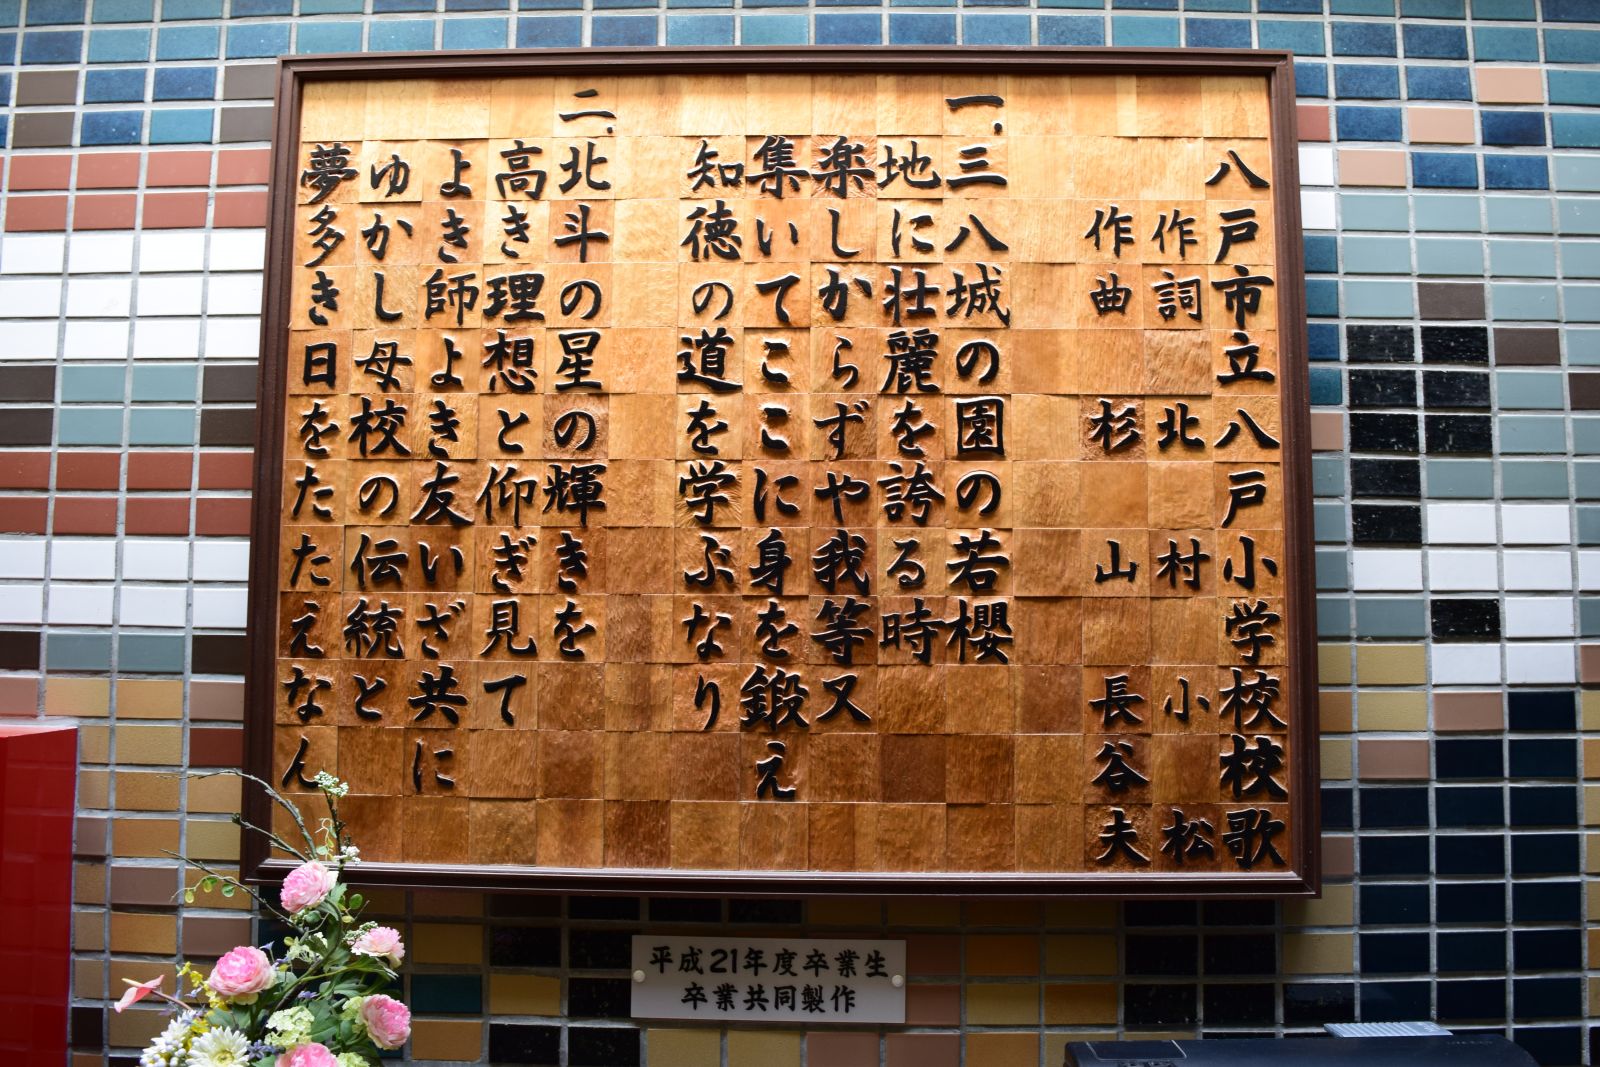 八戸市立八戸小学校校歌
作詞 北村小松
作曲 杉山長谷夫
一.三八城の園の若櫻
地に壮麗を誇る時
楽しからずや我等又
集いてここに身を鍛え
知徳の道を学ぶなり
二.北斗の星の輝きを
高き理想と仰ぎ見て
よき師よき友いざ共に
ゆかし母校の伝統と
夢多き日をたたえなん
平成21年度卒業生
卒業共同製作